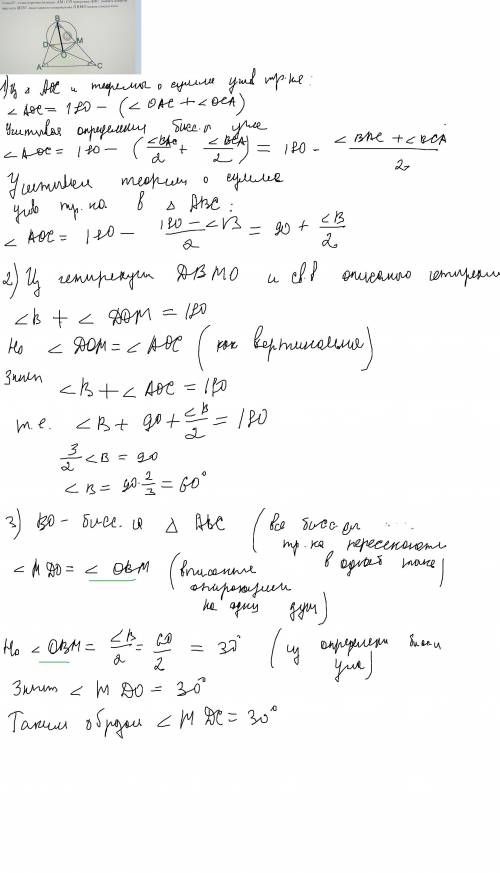 B
D
O
M
A
C
1) Из △ AOC и теоремы о сумме углов тр-ке:
∠AOC = 180 - (∠OAC + ∠OCA)
Учитывая определение бисс-и угла
∠AOC = 180 - (∠BAC/2 + ∠BCA/2) = 180 - (∠BAC + ∠BCA)/2
Учитывая теорему о сумме
углов тр-ка в △ ABC:
∠AOC = 180 - (180 - ∠B)/2 = 90 + ∠B/2
2) Из четырехуг DBMO и св-в описанного четырех
∠B + ∠DOM = 180
Но ∠DOM = ∠AOC (как вертикальные)
Значит ∠B + ∠AOC = 180
т.е. ∠B + 90 + ∠B/2 = 180
3/2 ∠B = 90
∠B = 90·2/3 = 60°
3) BO - бисс. △ ABC (все бисс-сы
тр-ка пересекаются
в одной точке)
∠MDO = ∠OBM (вписанные
опирающиеся
на одну дугу)
Но ∠OBM = ∠B/2 = 60/2 = 30° (из определения бисс
угла)
Значит ∠MDO = 30°
Таким образом ∠MDC = 30°